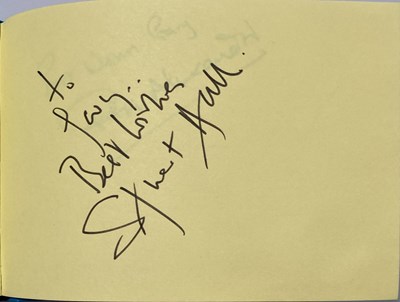 to
Best Wishes
Stuart Hall